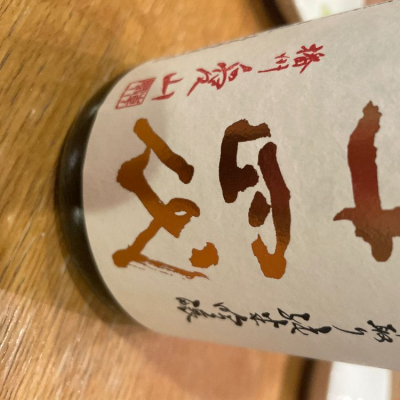 取り純米吟醸
十四代
播州愛山